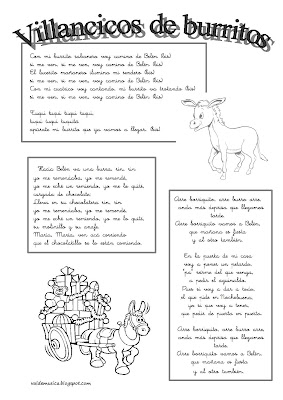 Villancicos de burritos
Con mi burrito sabanero voy camino de Belén (bis)
si me ven, si me ven, voy camino de Belén (bis)
El lucerito mañanero ilumina mi sendero (bis)
si me ven, si me ven, voy camino de Belén (bis)
Con mi cuatrico voy cantando, mi burrito va trotando (bis)
si me ven, si me ven, voy camino de Belén (bis)
Tuqui tuqui tuqui tuqui,
tuqui tuqui tuquitá
apúrate mi burrito que ya vamos a llegar (bis)
Hacia Belén va una burra, rin, rin
yo me remendaba, yo me remendé,
yo me eché un remiendo, yo me lo quité,
cargada de chocolate.
Lleva en su chocolatera rin, rin
yo me remendaba, yo me remendé,
yo me eché un remiendo, yo me lo quité,
su molinillo y su anafe.
María, María, ven acá corriendo
que el chocolatillo se lo están comiendo.
Arre borriquito, arre burro arre,
anda más deprisa que llegamos
tarde.
Arre borriquito vamos a Belén,
que mañana es fiesta
y al otro también.
En la puerta de mi casa
voy a poner un petardo,
'pa' reírme del que venga,
a pedir el aguinaldo.
Pues si voy a dar a todo
el que pide en Nochebuena,
yo sí que voy a tener,
que pedir de puerta en puerta.
Arre borriquito, arre burro arre,
anda más deprisa que llegamos
tarde.
Arre borriquito vamos a Belén,
que mañana es fiesta
y al otro también.
valdemusica.blogspot.com